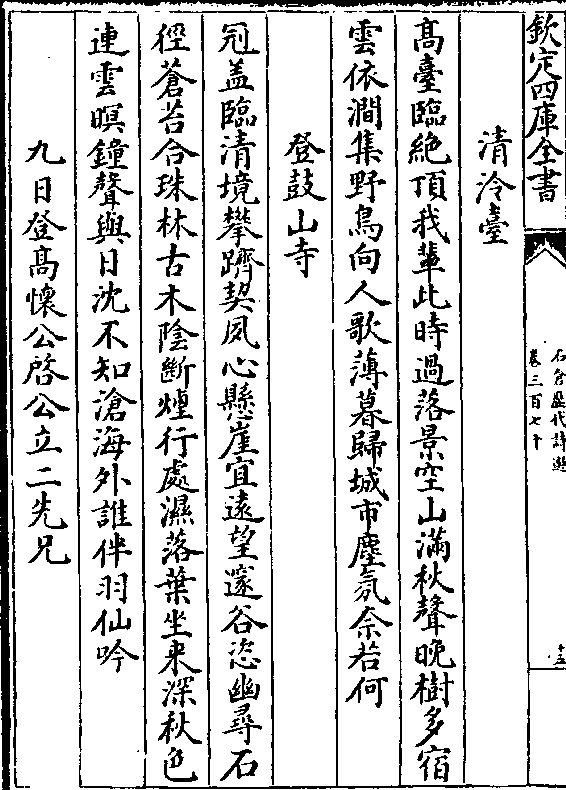 欽定四庫全書
石倉歷代詩選
卷三百七十
十五
清泠臺
髙臺臨絶頂我輩此時過落景空山滿秋聲晚樹多宿
雲依澗集野鳥向人歌薄暮歸城市塵氛奈若何
登鼓山寺
冠盖臨清境攀躋契夙心懸崖宜逺望邃谷恣幽尋石
徑蒼苔合珠林古木陰斷煙行處濕落葉坐來深秋色
連雲暝鐘聲與日沈不知滄海外誰伴羽仙吟
九日登髙懷公啓公立二先兄